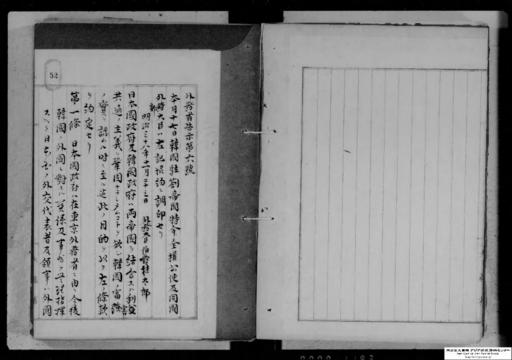 外務省告示第六號
本月十七日韓國駐劄帝國特命全權公使及同國
外部大臣ハ左記協約ニ調印セリ
明治三十八年十一月二十三日 外務大臣 伯爵桂太郎
日本國政府及韓國政府ハ兩帝國ヲ結合スル利害
共通ノ主義ヲ鞏固ナラシメムコトヲ欲シ韓國ノ富強
ノ實ヲ認ムル時ニ至ル迄此ノ目的ヲ以テ左ノ條款
ヲ約定セリ
第一條 日本國政府ハ在東京外務省ニ由リ今後
韓國ノ外國ニ對スル關係及事務ヲ監理指揮
スヘク日本國ノ外交代表者及領事ハ外國
52